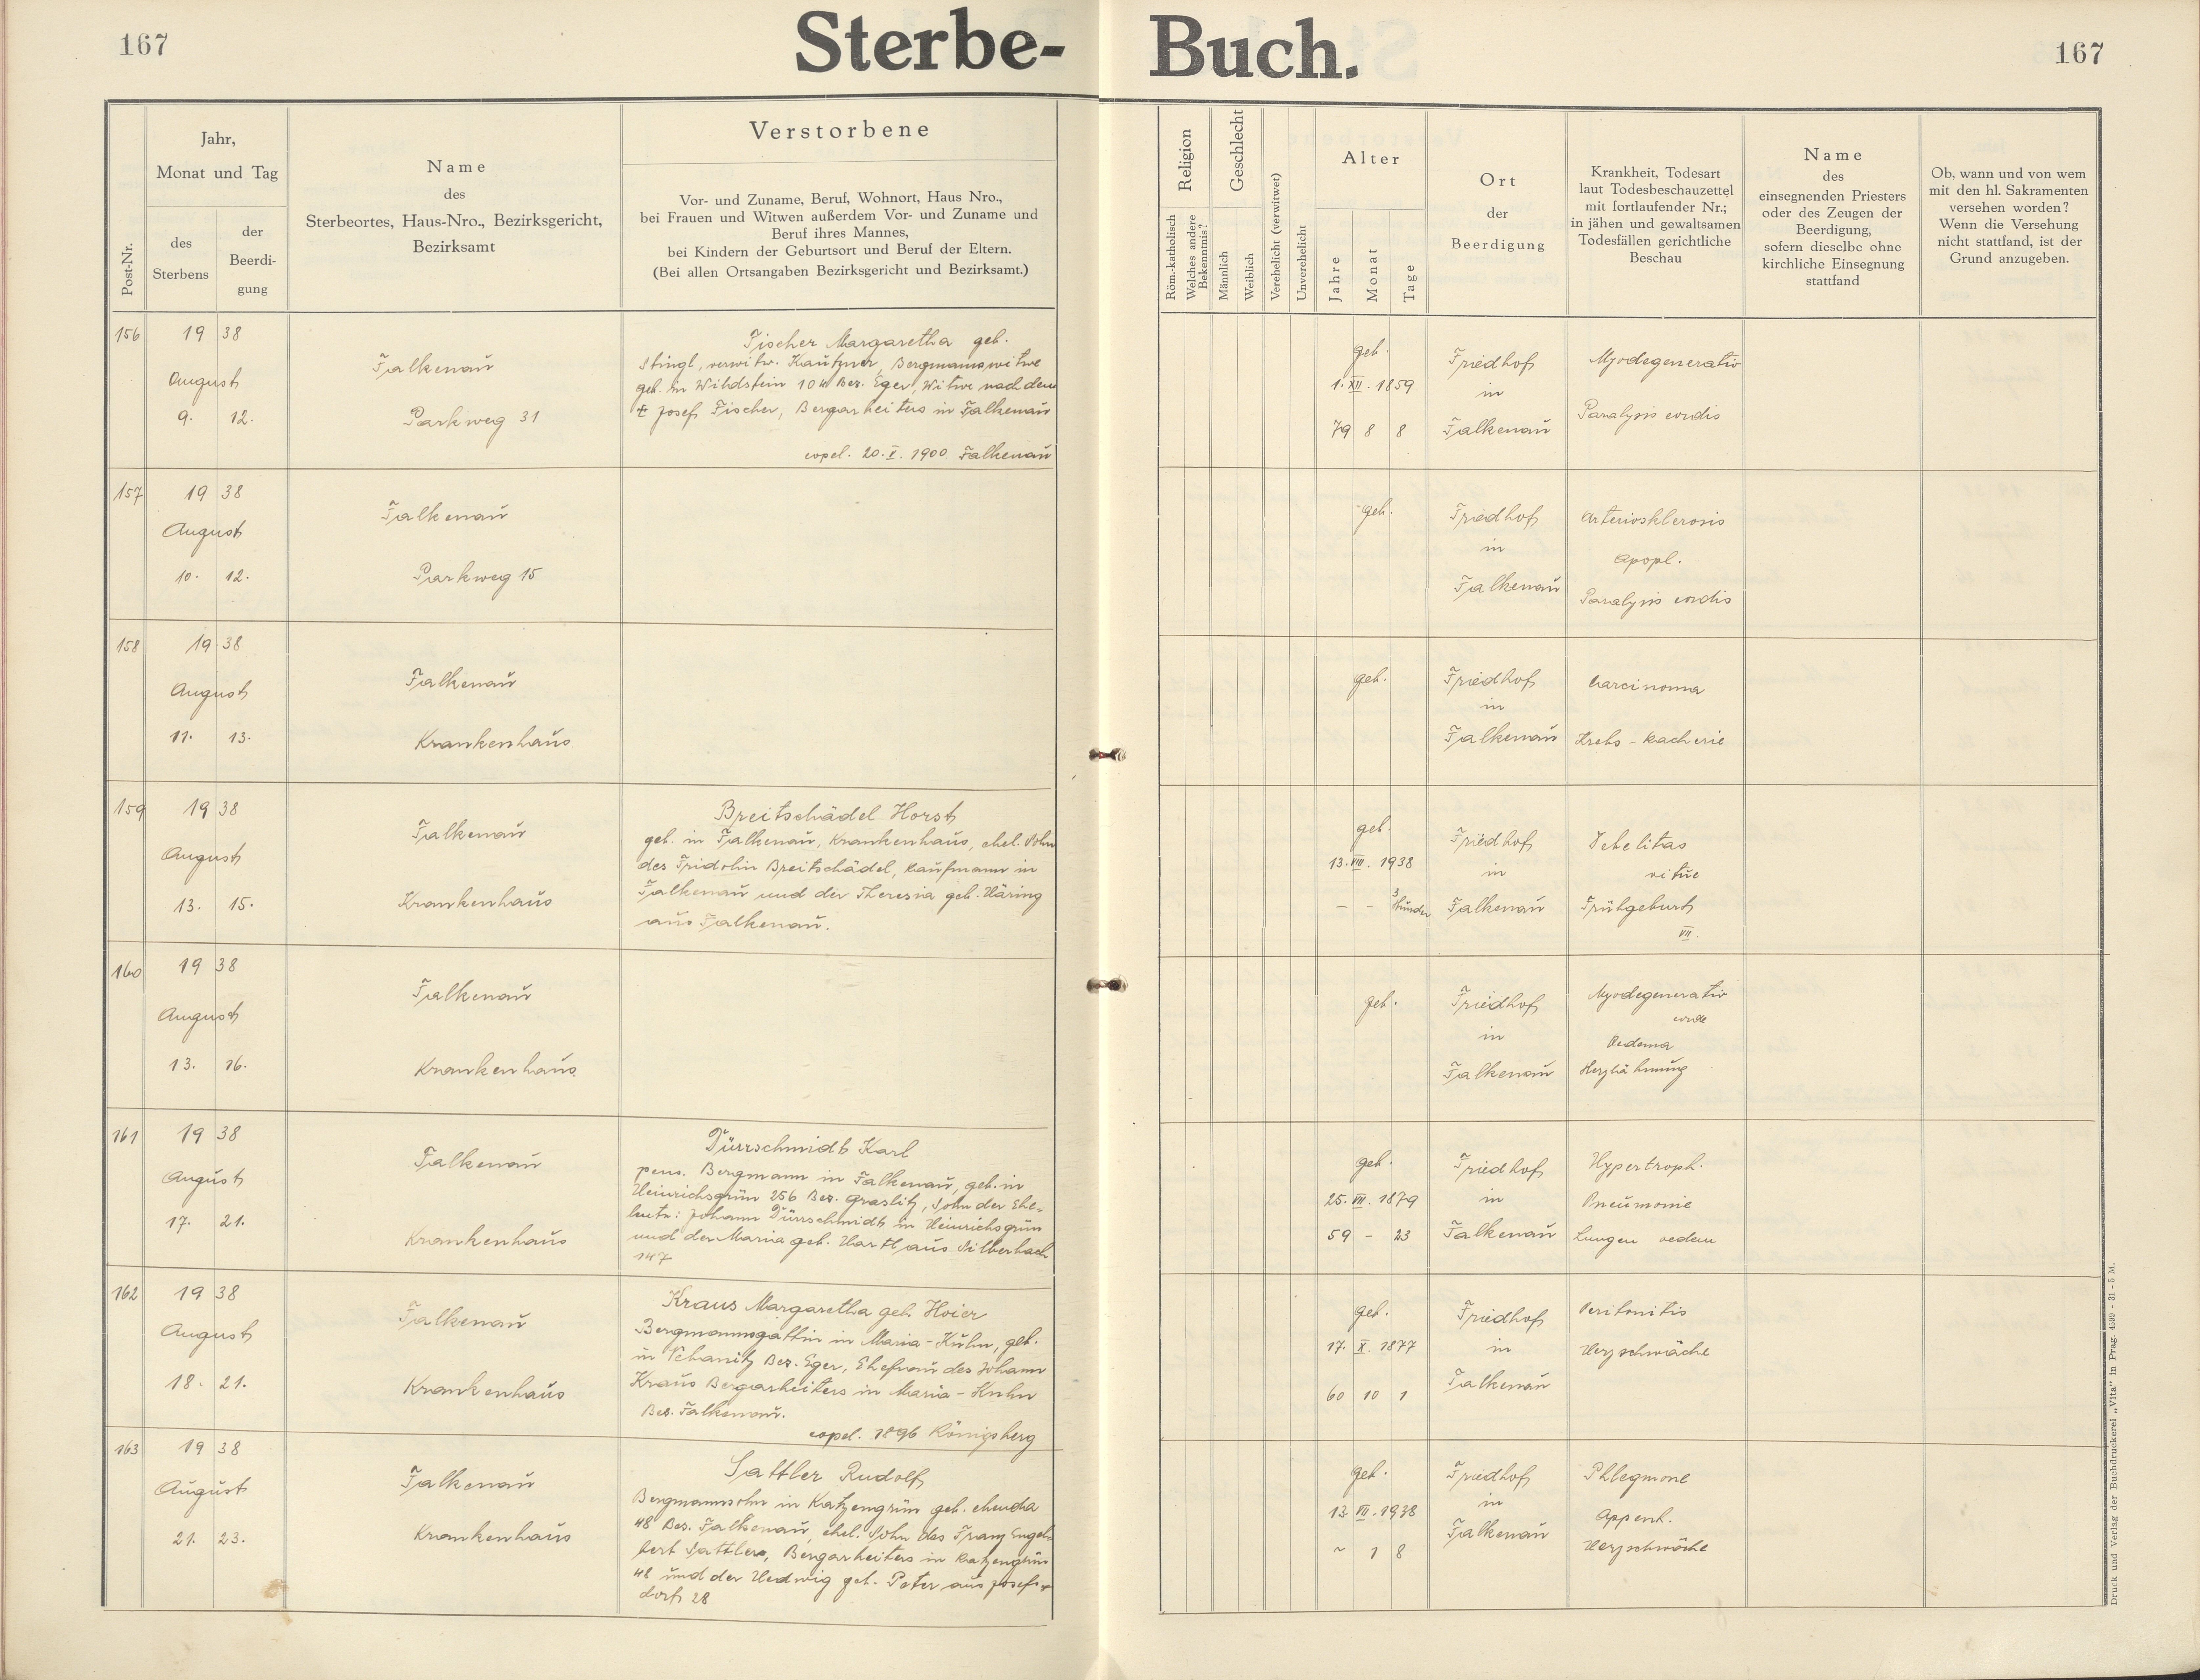 167
Sterbe-Buch.
167
Post-Nr.
Jahr,
Monat und Tag
des
Sterbens
der
Beerdi-
gung
Name
des
Sterbeortes, Haus-Nro., Bezirksgericht,
Bezirksamt
Verstorbene
Vor- und Zuname, Beruf, Wohnort, Haus Nro.,
bei Frauen und Witwen außerdem Vor- und Zuname und
Beruf ihres Mannes,
bei Kindern der Geburtsort und Beruf der Eltern.
(Bei allen Ortsangaben Bezirksgericht und Bezirksamt.)
Religion
Röm.-katholisch
Welches andere
Bekenntnis?
Geschlecht
Männlich
Weiblich
Verehelicht (verwitwet)
Unverehelicht
Alter
Jahre
Monat
Tage
Ort
der
Beerdigung
Krankheit, Todesart
laut Todesbeschauzettel
mit fortlaufender Nr.;
in jähen und gewaltsamen
Todesfällen gerichtliche
Beschau
Name
des
einsegnenden Priesters
oder des Zeugen der
Beerdigung,
sofern dieselbe ohne
kirchliche Einsegnung
stattfand
Ob, wann und von wem
mit den hl. Sakramenten
versehen worden?
Wenn die Versehung
nicht stattfand, ist der
Grund anzugeben.
156
19 38
August
9. 12.
Falkenau
Parkweg 31
Fischer Margaretha geb.
Stingl, verwitw. Kautzner, Bergmannswitwe
geb. in Wildstein 104 Bez. Eger, Witwe nach dem
† Josef Fischer, Bergarbeiters in Falkenau
copul. 20. I. 1900 Falkenau
geb.
1. XII. 1859
79 8 8
Friedhof
in
Falkenau
Myodegeneratio
Paralysis cordis
157
19 38
August
10. 12.
Falkenau
Parkweg 15
geb.
Friedhof
in
Falkenau
Arteriosklerosis
Apopl.
Paralysis cordis
158
19 38
August
11. 13.
Falkenau
Krankenhaus
geb.
Friedhof
in
Falkenau
Carcinoma
Krebs - Kachexie
159
19 38
August
13. 15.
Falkenau
Krankenhaus
Breitschädel Horst
geb. in Falkenau, Krankenhaus, ehel. Sohn
des Fridolin Breitschädel, Kaufmann in
Falkenau und der Theresia geb. Häring
aus Falkenau.
geb.
13. VIII. 1938
– – 3 Stunden
Friedhof
in
Falkenau
Debelitas
vitae
Frühgeburt
VII.
160
19 38
August
13. 16.
Falkenau
Krankenhaus
geb.
Friedhof
in
Falkenau
Myodegeneratio
Oedema
Herzlähmung
161
19 38
August
17. 21.
Falkenau
Krankenhaus
Dürrschmidt Karl
pens. Bergmann in Falkenau, geb. in
Heinrichsgrün 256 Bez. Graslitz, Sohn der Ehe-
leute: Johann Dürrschmidt in Heinrichsgrün
und der Maria geb. Hartl aus Silberbach
147
geb.
25. VII. 1879
59 – 23
Friedhof
in
Falkenau
Hypertroph.
Pneumonie
Lungen oedem
162
19 38
August
18. 21.
Falkenau
Krankenhaus
Kraus Margaretha geb. Hoier
Bergmannsgattin in Maria-Kulm, geb.
in Bez. Eger, Ehefrau des Johann
Kraus Bergarbeiters in Maria-Kulm
Bez. Falkenau.
copul. 1896 Königsberg
geb.
17. X. 1877
60 10 1
Friedhof
in
Falkenau
Peritonitis
Herzschwäche
163
19 38
August
21. 23.
Falkenau
Krankenhaus
Sattler Rudolf
Bergmannsohn in Katzengrün geb. ebenda
48 Bez. Falkenau, ehel. Sohn des Franz Engel-
bert Sattlers, Bergarbeiters in Katzengrün
48 und der Hedwig geb. Peter aus Josefs-
dorf 28
geb.
13. VII. 1938
~ 1 8
Friedhof
in
Falkenau
Phlegmone
Append.
Herzschwäche
Druck und Verlag der Buchdruckerei „Vita" in Prag. 4599 - 31 - 5 M.